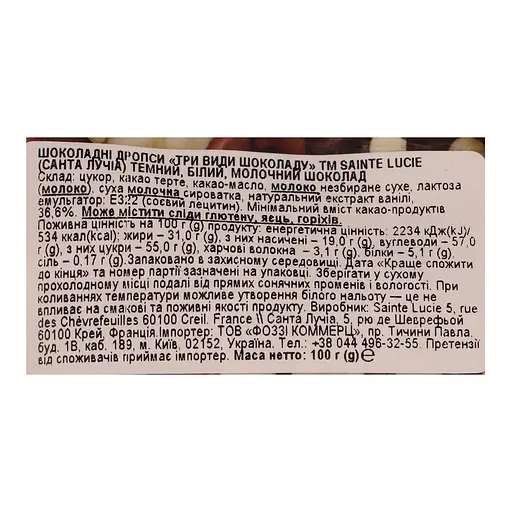 ШОКОЛАДНІ ДРОПСИ «ТРИ ВИДИ ШОКОЛАДУ» ТМ SAINTE LUCIE
(САНТА ЛУЧІА) ТЕМНИЙ, БІЛИЙ, МОЛОЧНИЙ ШОКОЛАД
Склад: цукор, какао терте, какао-масло, молоко незбиране сухе, лактоза
(молоко), суха молочна сироватка, натуральний екстракт ванілі,
емульгатор: Е322 (соєвий лецитин). Мінімальний вміст какао-продуктів
36,6%. Може містити сліди глютену, яєць, горіхів.
Поживна цінність на 100 г(g) продукту: енергетична цінність: 2234 кДж(kJ)/
534 ккал(kcal); жири – 31,0 г (g), з них насичені – 19,0 г (g), вуглеводи – 57,0
г (g), з них цукри – 55,0 г (g), харчові волокна – 3,1 г (g), білки – 5,1 г (g),
сіль – 0,17 г (g).Запаковано в захисному середовищі. Дата «Краще спожити
до кінця» та номер партії зазначені на упаковці. Зберігати у сухому
прохолодному місці подалі від прямих сонячних променів і вологості. При
коливаннях температури можливе утворення білого нальоту — це не
впливає на смакові та поживні якості продукту. Виробник: Sainte Lucie 5, rue
des Chèvrefeuilles 60100 Creil. France \\ Санта Лучіа, 5, рю де Шеврефьой
60100 Крей, Франція.Імпортер: ТОВ «ФОЗЗІ КОММЕРЦ», пр. Тичини Павла,
буд. 1В, каб. 189, м. Київ, 02152, Україна. Тел.: +38 044 496-32-55. Претензії
від споживачів приймає імпортер. Маса нетто: 100 г (g)℮